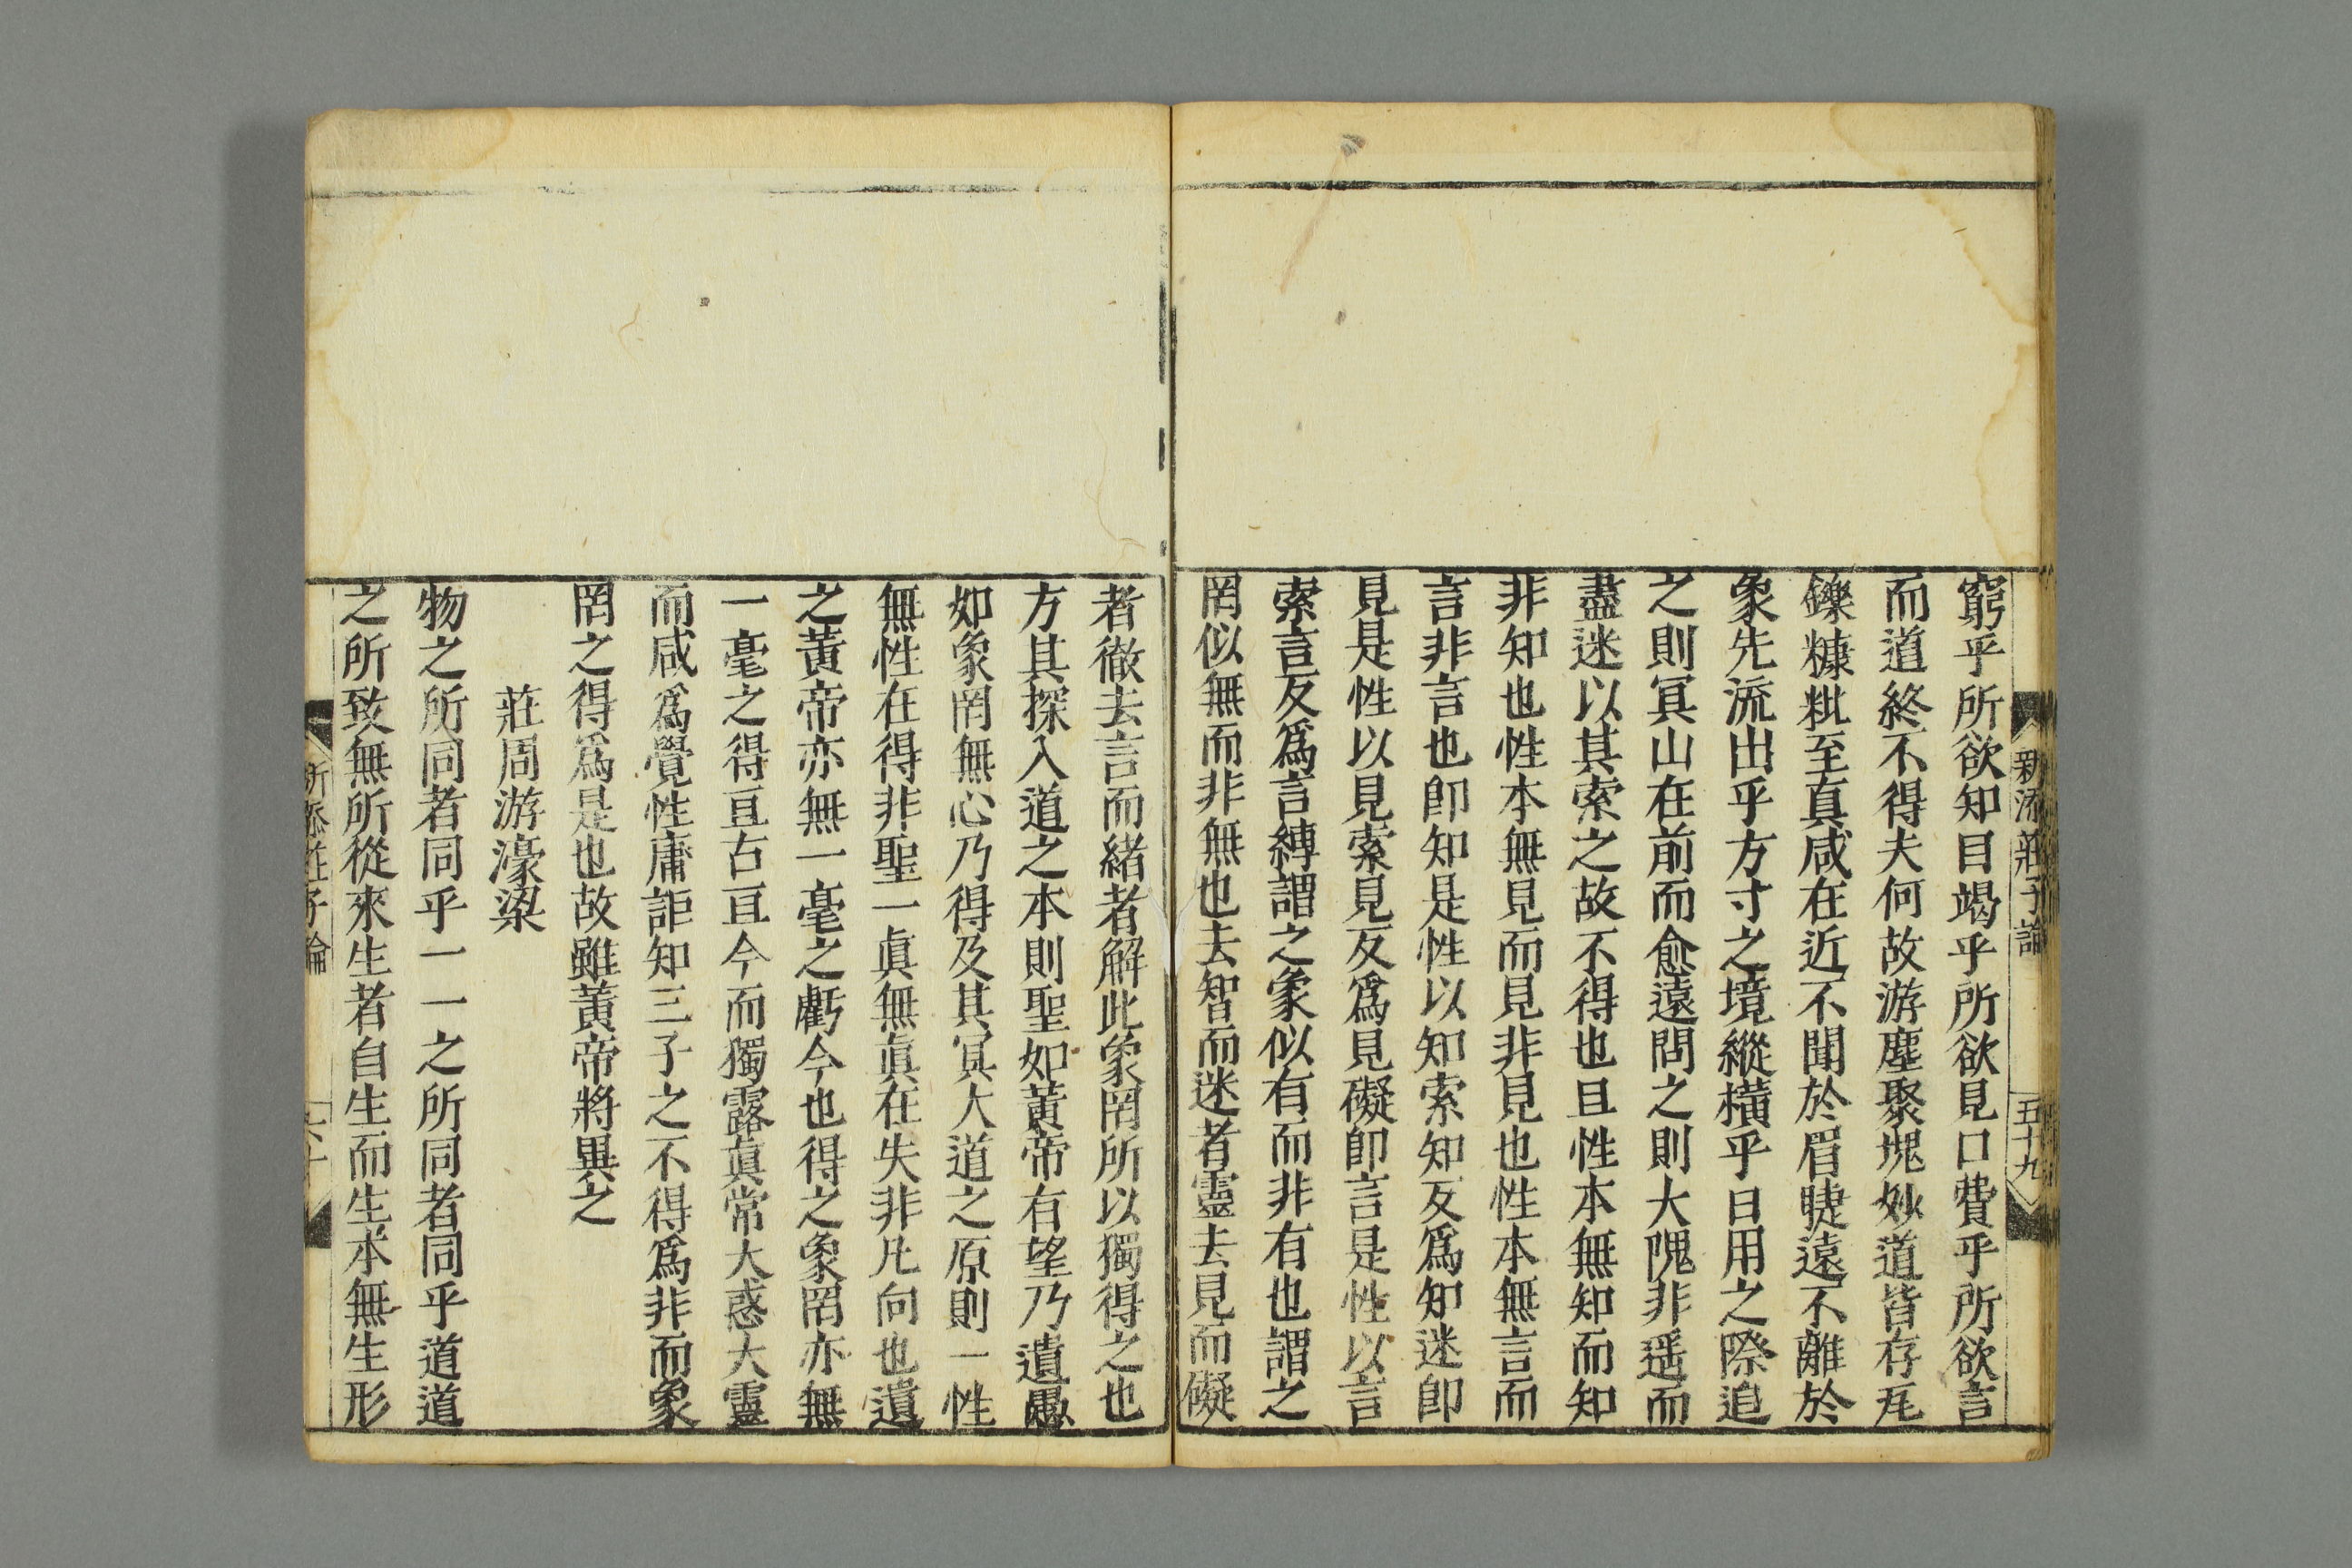 新添莊子論
五十九
窮乎所欲知目竭乎所欲見口費乎所欲言
而道終不得夫何故游塵聚塊妙道皆存瓦
鑠糠粃至真咸在近不聞於眉睫遠不離於
象先流出乎方寸之境縱橫乎日用之際追
之則冥山在前而愈遠問之則大隗非遥而
盡迷以其索之故不得也且性本無知而知
非知也性本無見而見非見也性本無言而
言非言也卽知是性以知索知反爲知迷卽
見是性以見索見反爲見礙卽言是性以言
索言反爲言縛謂之象似有而非有也謂之
罔似無而非無也去智而迷者靈去見而礙
者徹去言而緒者解此象罔所以獨得之也
方其探入道之本則聖如黃帝有望乃遺愚
如象罔無心乃得及其冥大道之原則一性
無性在得非聖一眞無眞在失非凡向也遺
之黃帝亦無一毫之虧今也得之象罔亦無
一毫之得亘古亘今而獨露眞常大惑大靈
而咸爲覺性庸詎知三子之不得爲非而象
罔之得爲是也故雖黃帝將異之
莊周游濠梁
物之所同者同乎一一之所同者同乎道道
之所致無所從來生者自生而生本無生形
新添莊子論